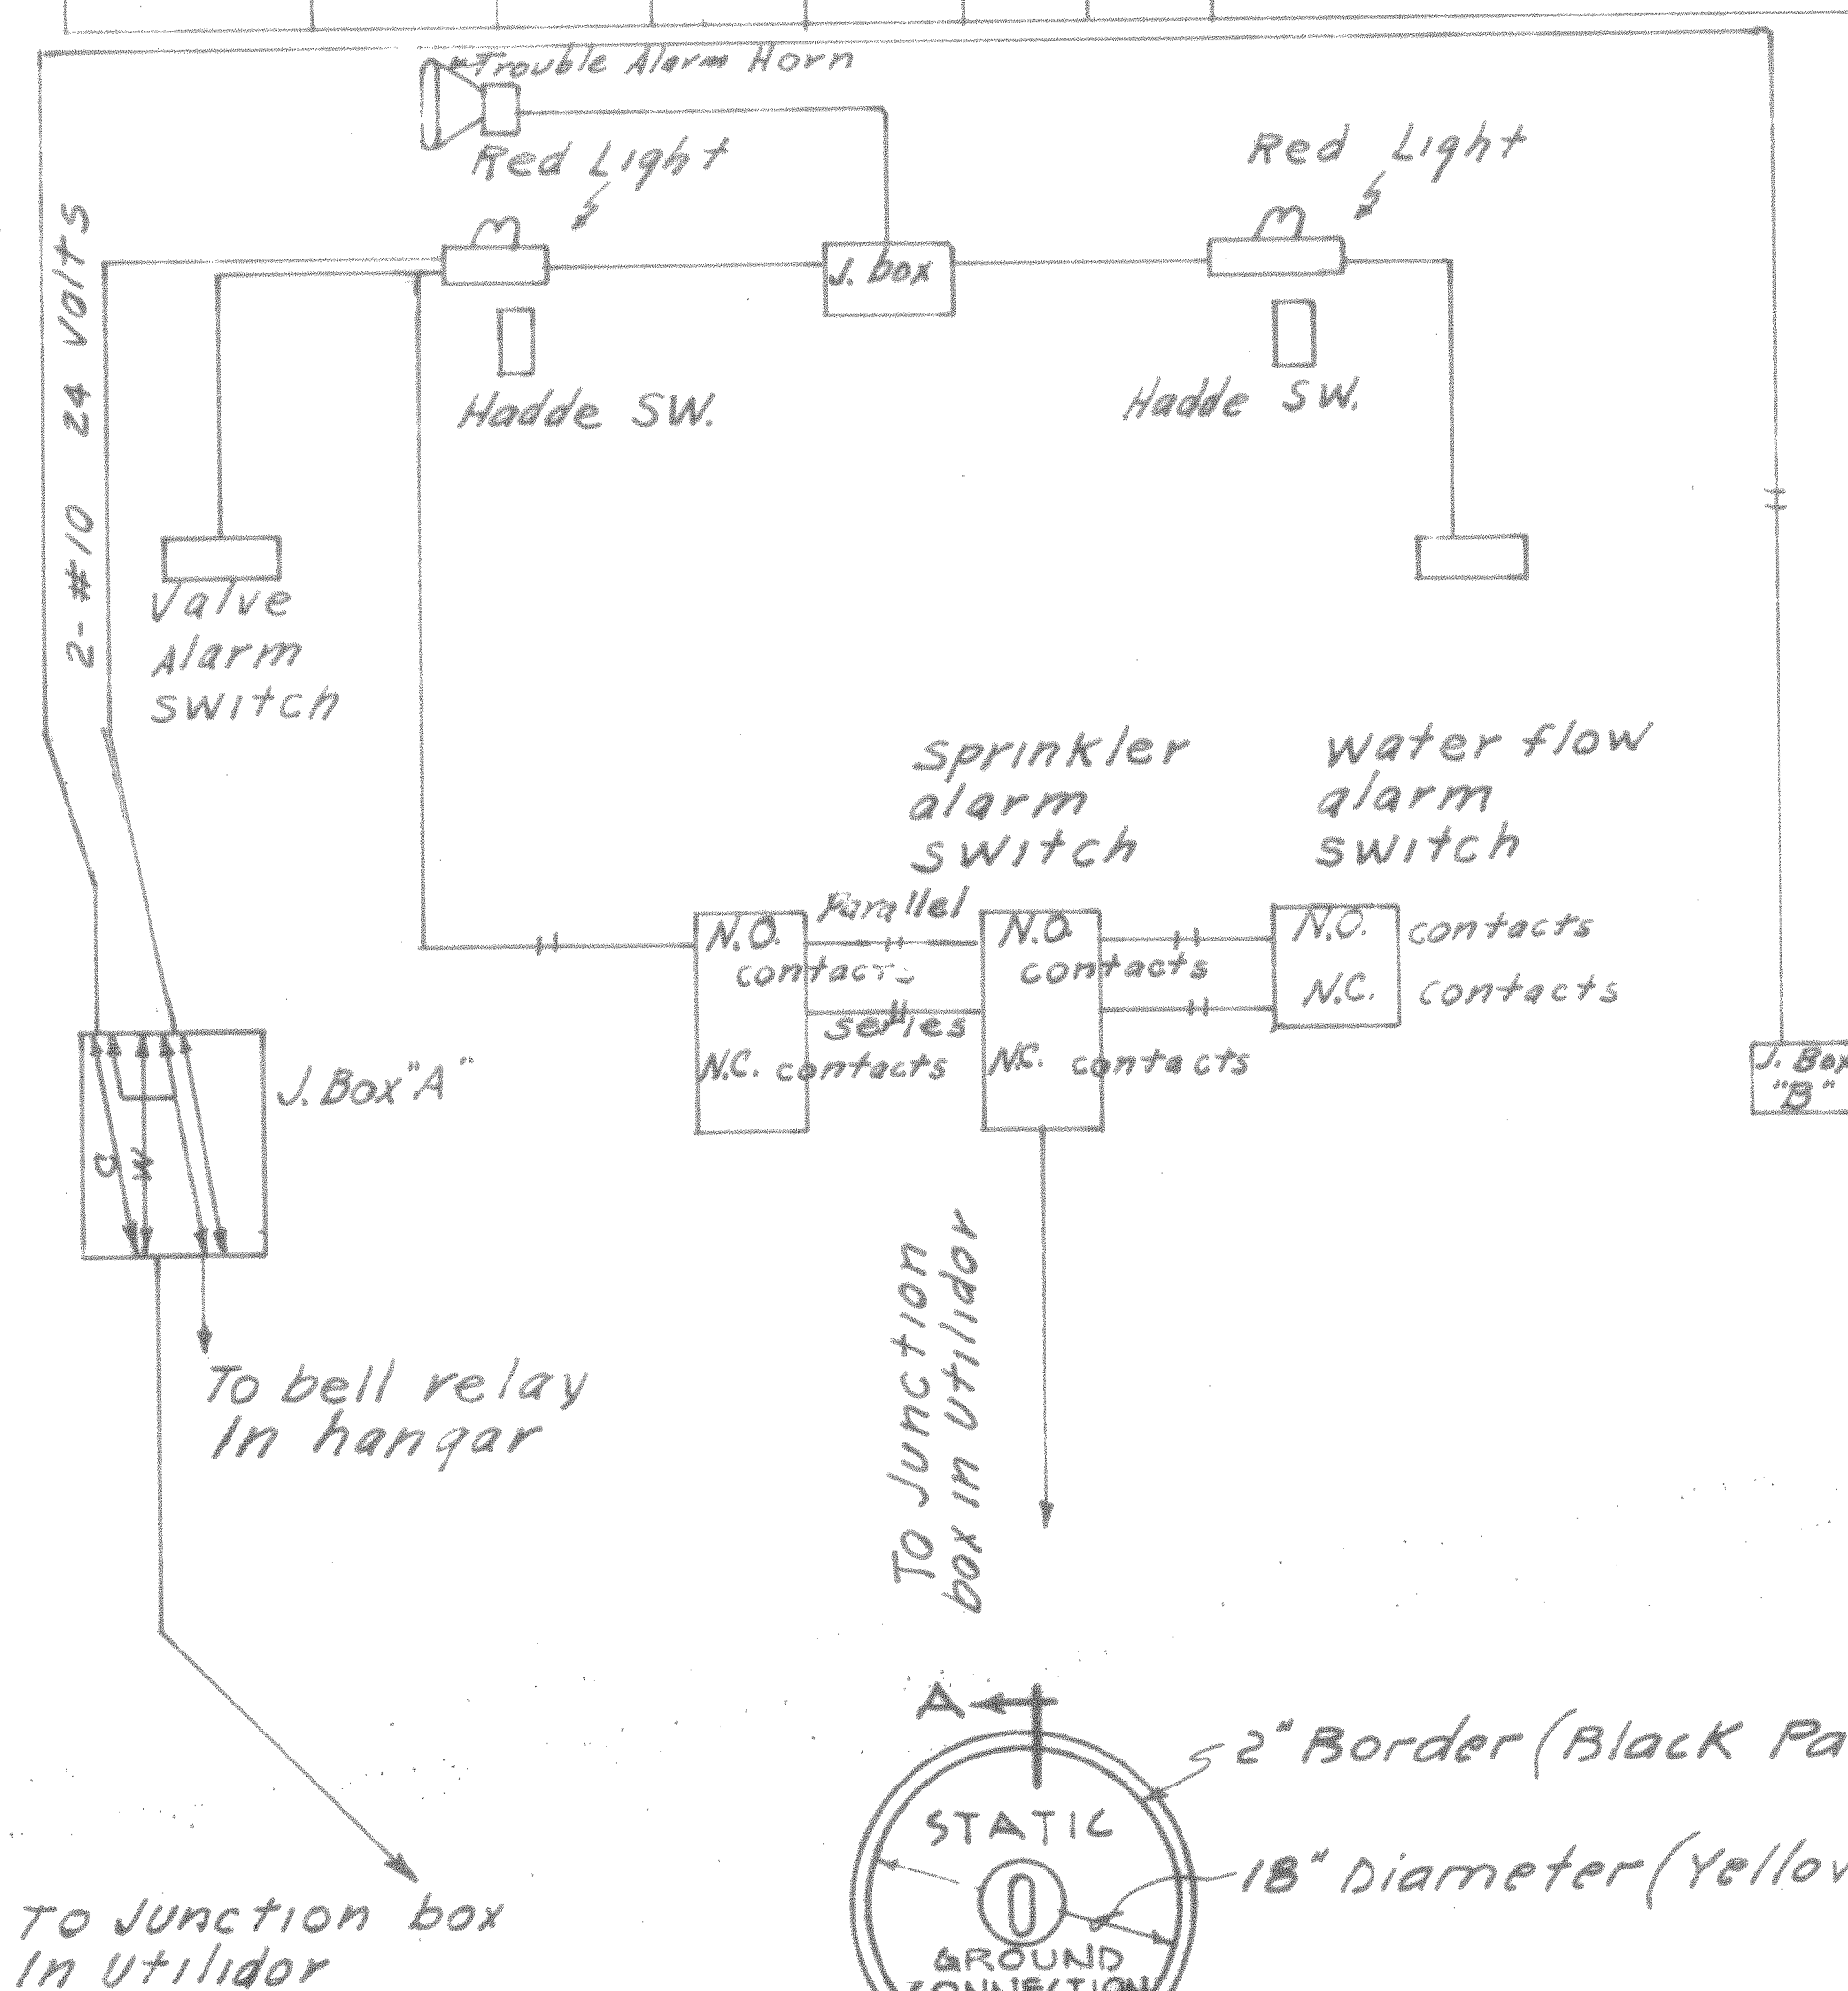 Trouble Alarm Horn
Red Light
Red Light
2-#10 24 Volts
J. box
Hadde SW.
Hadde SW.
Valve
Alarm
switch
sprinkler
alarm
switch
water flow
alarm
switch
Parallel
N.O.
contacts
N.O.
contacts
N.O. contacts
series
N.C. contacts
N.C. contacts
N.C. contacts
J. Box "A"
J. Box
"B"
To bell relay
In hangar
To Junction
box in utilidor
To Junction box
In utilidor
A
2" Border (Black
18" Diameter
STATIC
GROUND
CONNECTION